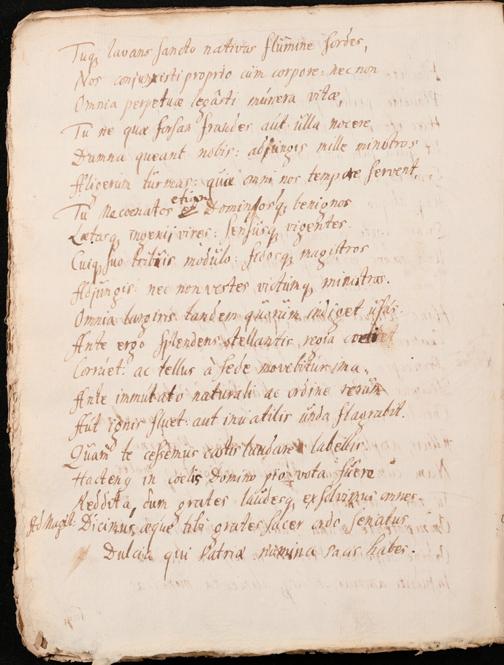 Tuq, lavans sancto nativas flumine sordes,
Nos conjunxisti proprio cum corpore: nec non
Omnia perpetuæ legâsti munera vitæ,
Tu ne quæ forsan fraudes aut ulla nocere
Damna queant nobis: adjungis mille ministros
Aligerum turmas: quæ omni nos tempore servent,
Tu Mecoenates etiam Dominosq, benignos
Lætasq, ingenij vires: sensusq, vigentes
Cuiq, suo tribuis modulo: fidosq, magistros
Adjungis: nec non vestes victumq, ministras.
Omnia largiris tandem quorum indiget usus
Ante ergo splendens stellantis regia coeli
Corruet: ac tellus à sede movebitur ima,
Ante immutato naturali ac ordine rerum
Aut ignis fluet: aut innatilis unda flagrabit.
Quam te cessemus castis laudare labellis
Hactenq in coelis Domino pro vota fuere
Reddita, dum grates laudesq, exsolvimus omnes
Ad Magist: Dicimus æque tibi grates sacer ordo senatus
Dulcia qui patriæ numina pacis habes.